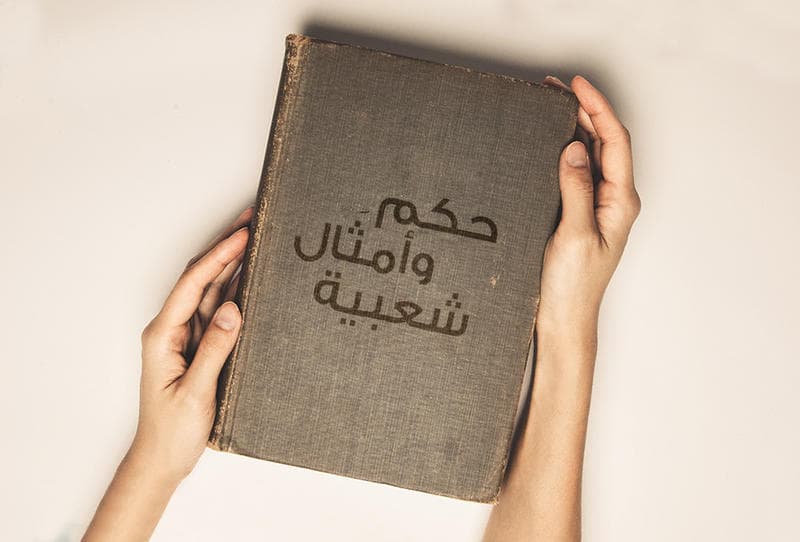 حكم
وأمثال
شعبية